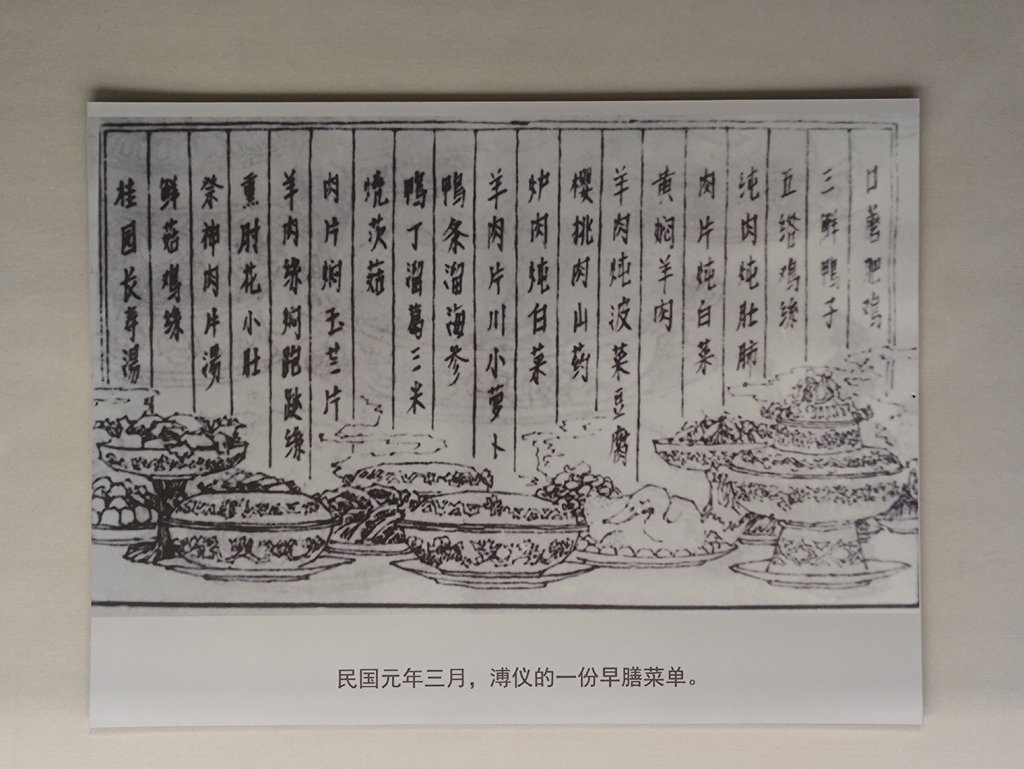 口蘑肥鸡
三鲜鸭子
五绺鸡絲
炖肉炖肚肺
肉片炖白菜
黄焖羊肉
羊肉炖波菜豆腐
樱桃肉山药
炉肉炖白菜
羊肉片川小萝卜
鴨条溜海参
鴨丁溜葛三米
烧茨菇
肉片焖玉兰片
羊肉絲焖跑跶絲
熏肘花小肚
祭神肉片湯
鲜菇鸡絲
桂园长寿湯
民国元年三月，溥仪的一份早膳菜单。